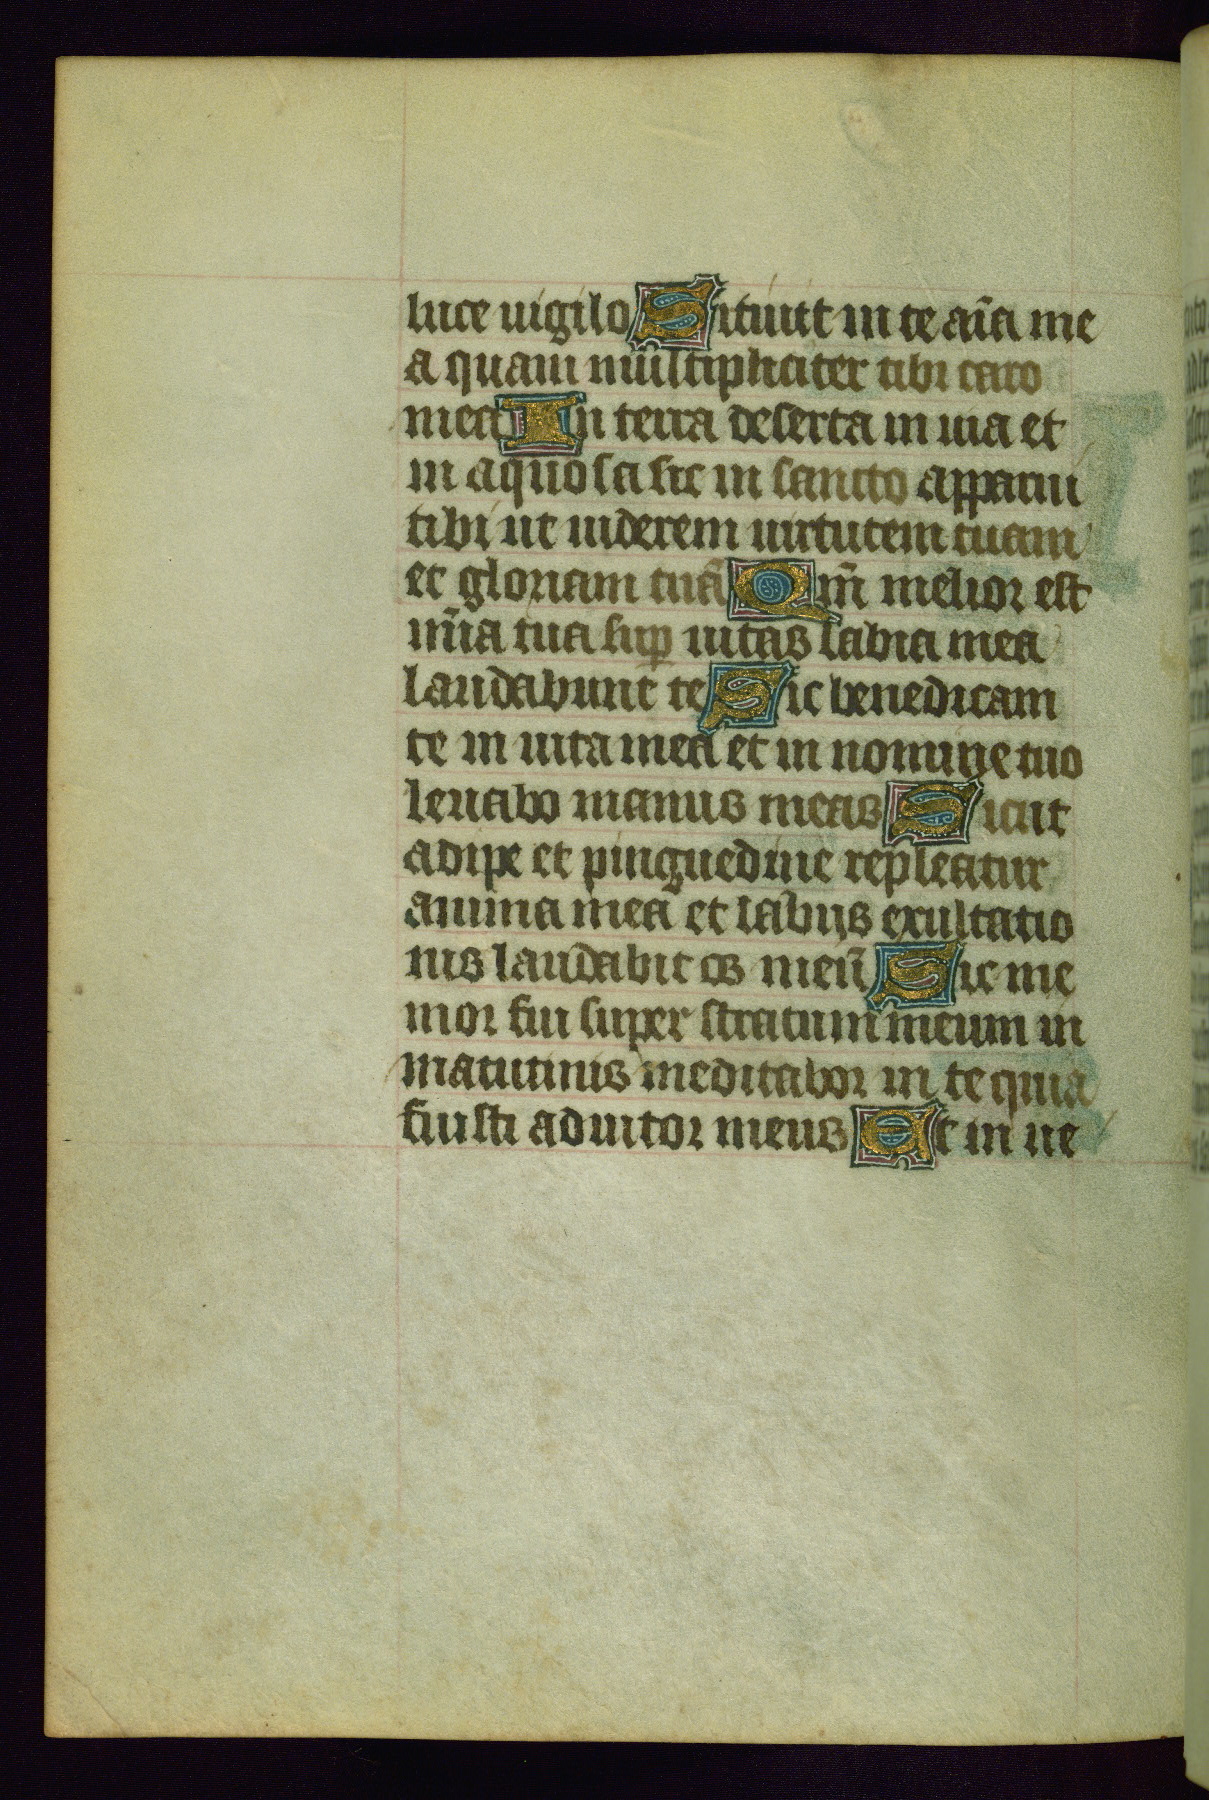 luce uigilo Sitiuit in te aīa me
a quam multipliciter tibi caro
mea In terra deserta in uia et
in aquosa sic in sancto apparui
tibi ut uiderem uirtutem tuam
et gloriam tuā Qm̄ melior est
mīa tua sup uitas labia mea
laudabunt te Sic benedicam
te in uita mea et in nomine tuo
leuabo manus meas Sicut
adipe et pinguedine repleatur
anima mea et labijs exultatio
nis laudabit os meū Sic me
mor fui super stratum meum in
matutinis meditabor in te quia
fuisti adiutor meus Et in ue